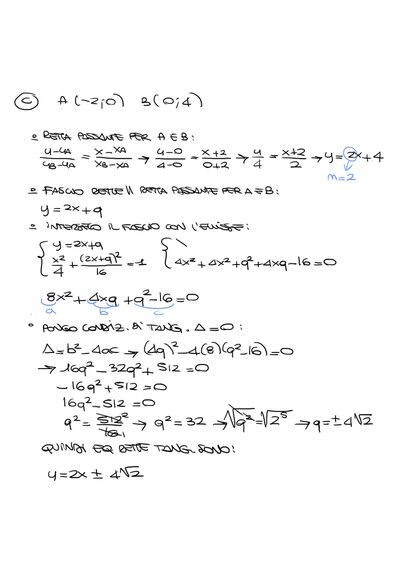 c) A(-2;0) B(0;4)
° RETTA PASSANTE PER A E B:
y-yA/yB-yA = x-xA/xB-xA → y-0/4-0 = x+2/0+2 → y/4 = x+2/2 → y=2x+4
m=2
° FASCIO RETTE // RETTA PASSANTE PER A E B:
y=2x+q
° INTERSECO IL FASCIO CON L'ELLISSE:
{ y=2x+q { \
x²/4 + (2x+q)²/16 = 1 4x²+4x²+q²+4xq-16=0
8x²+4xq+q²-16=0
a b c
° PONGO CONDIZ. DI TANG. Δ=0:
Δ=b²-4ac → (4q)²-4(8)(q²-16)=0
→ 16q²-32q²+512=0
-16q²+512=0
16q²-512=0
q²= 512/16 → q²=32 → √q²=√2⁵ → q=±4√2
QUINDI EQ RETTE TANG. SONO:
y=2x ± 4√2